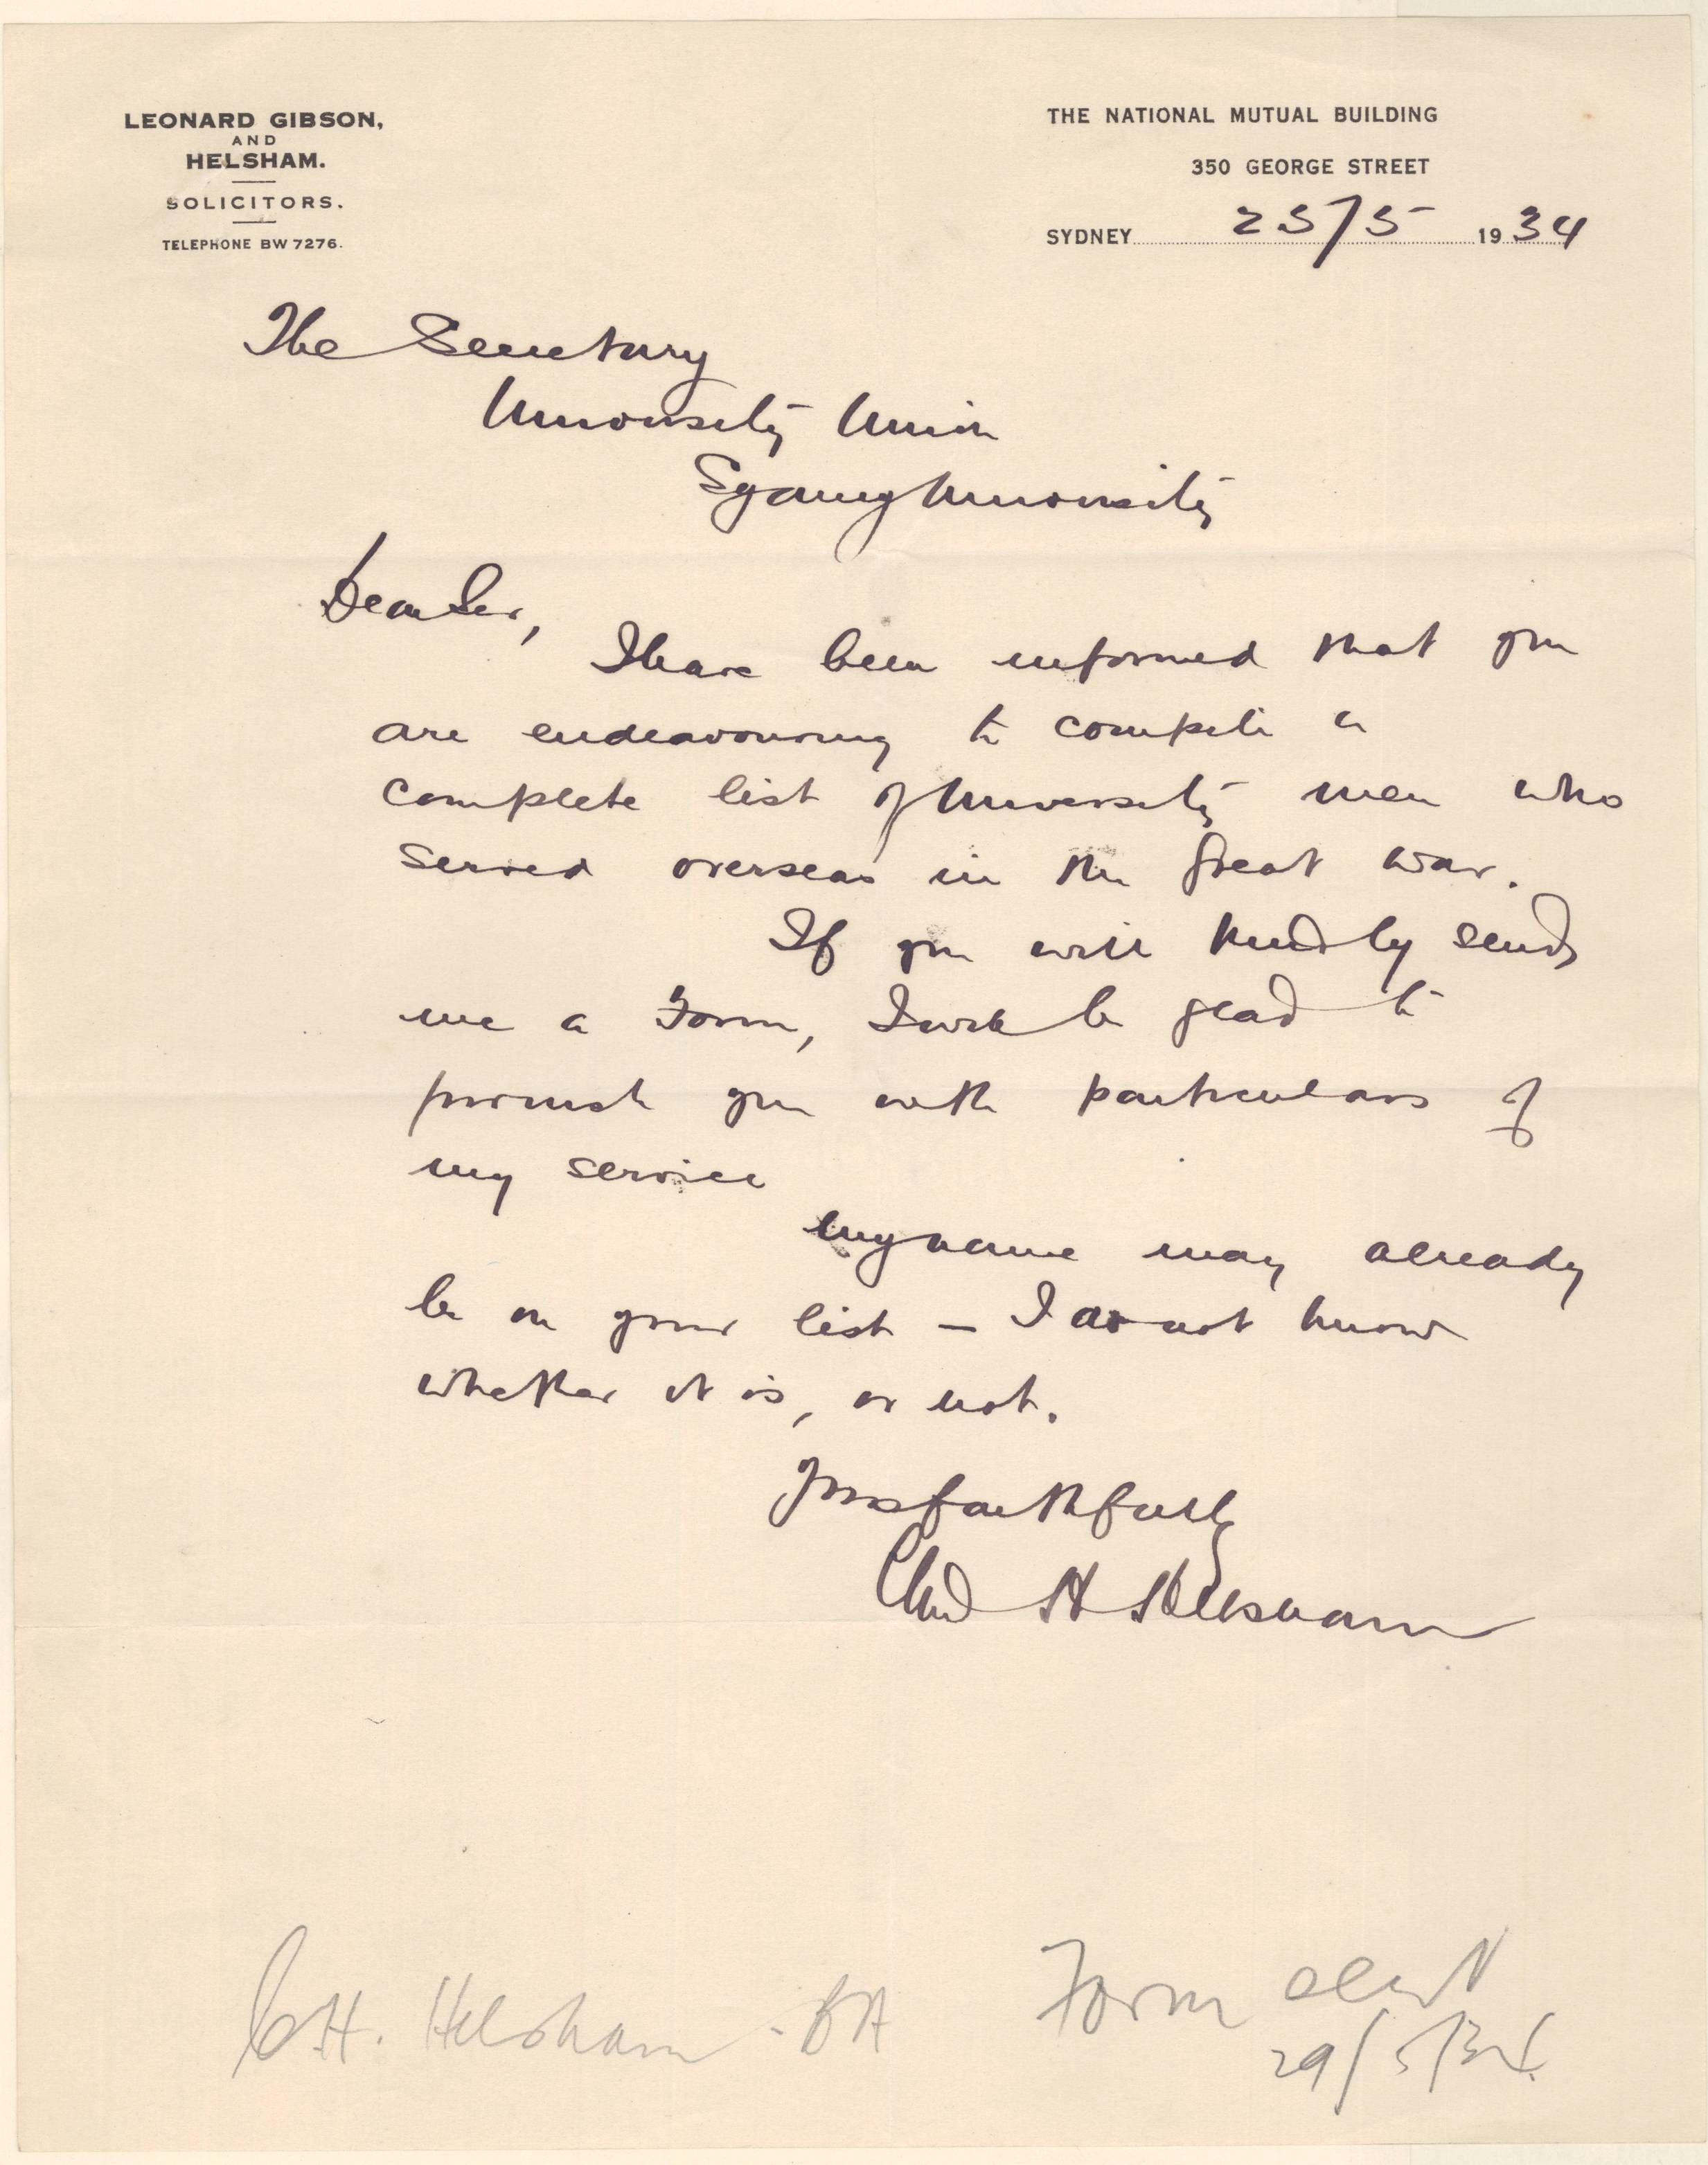 LEONARD GIBSON,
AND
HELSHAM.
SOLICITORS.
TELEPHONE BW 7276.
THE NATIONAL MUTUAL BUILDING
350 GEORGE STREET
SYDNEY 25/5 1934
The Secretary
University Union
Sydney University
Dear Sir,
I have been informed that you
are endeavouring to compile a
complete list of University men who
served overseas in the Great War.
If you will kindly send
me a Form, I will be glad to
furnish you with particulars of
my service
My name may already
be on your list — I do not know
whether it is, or not.
Yours faithfully
H Helsham
C.H. Helsham - BA
Form sent
29/5/34.